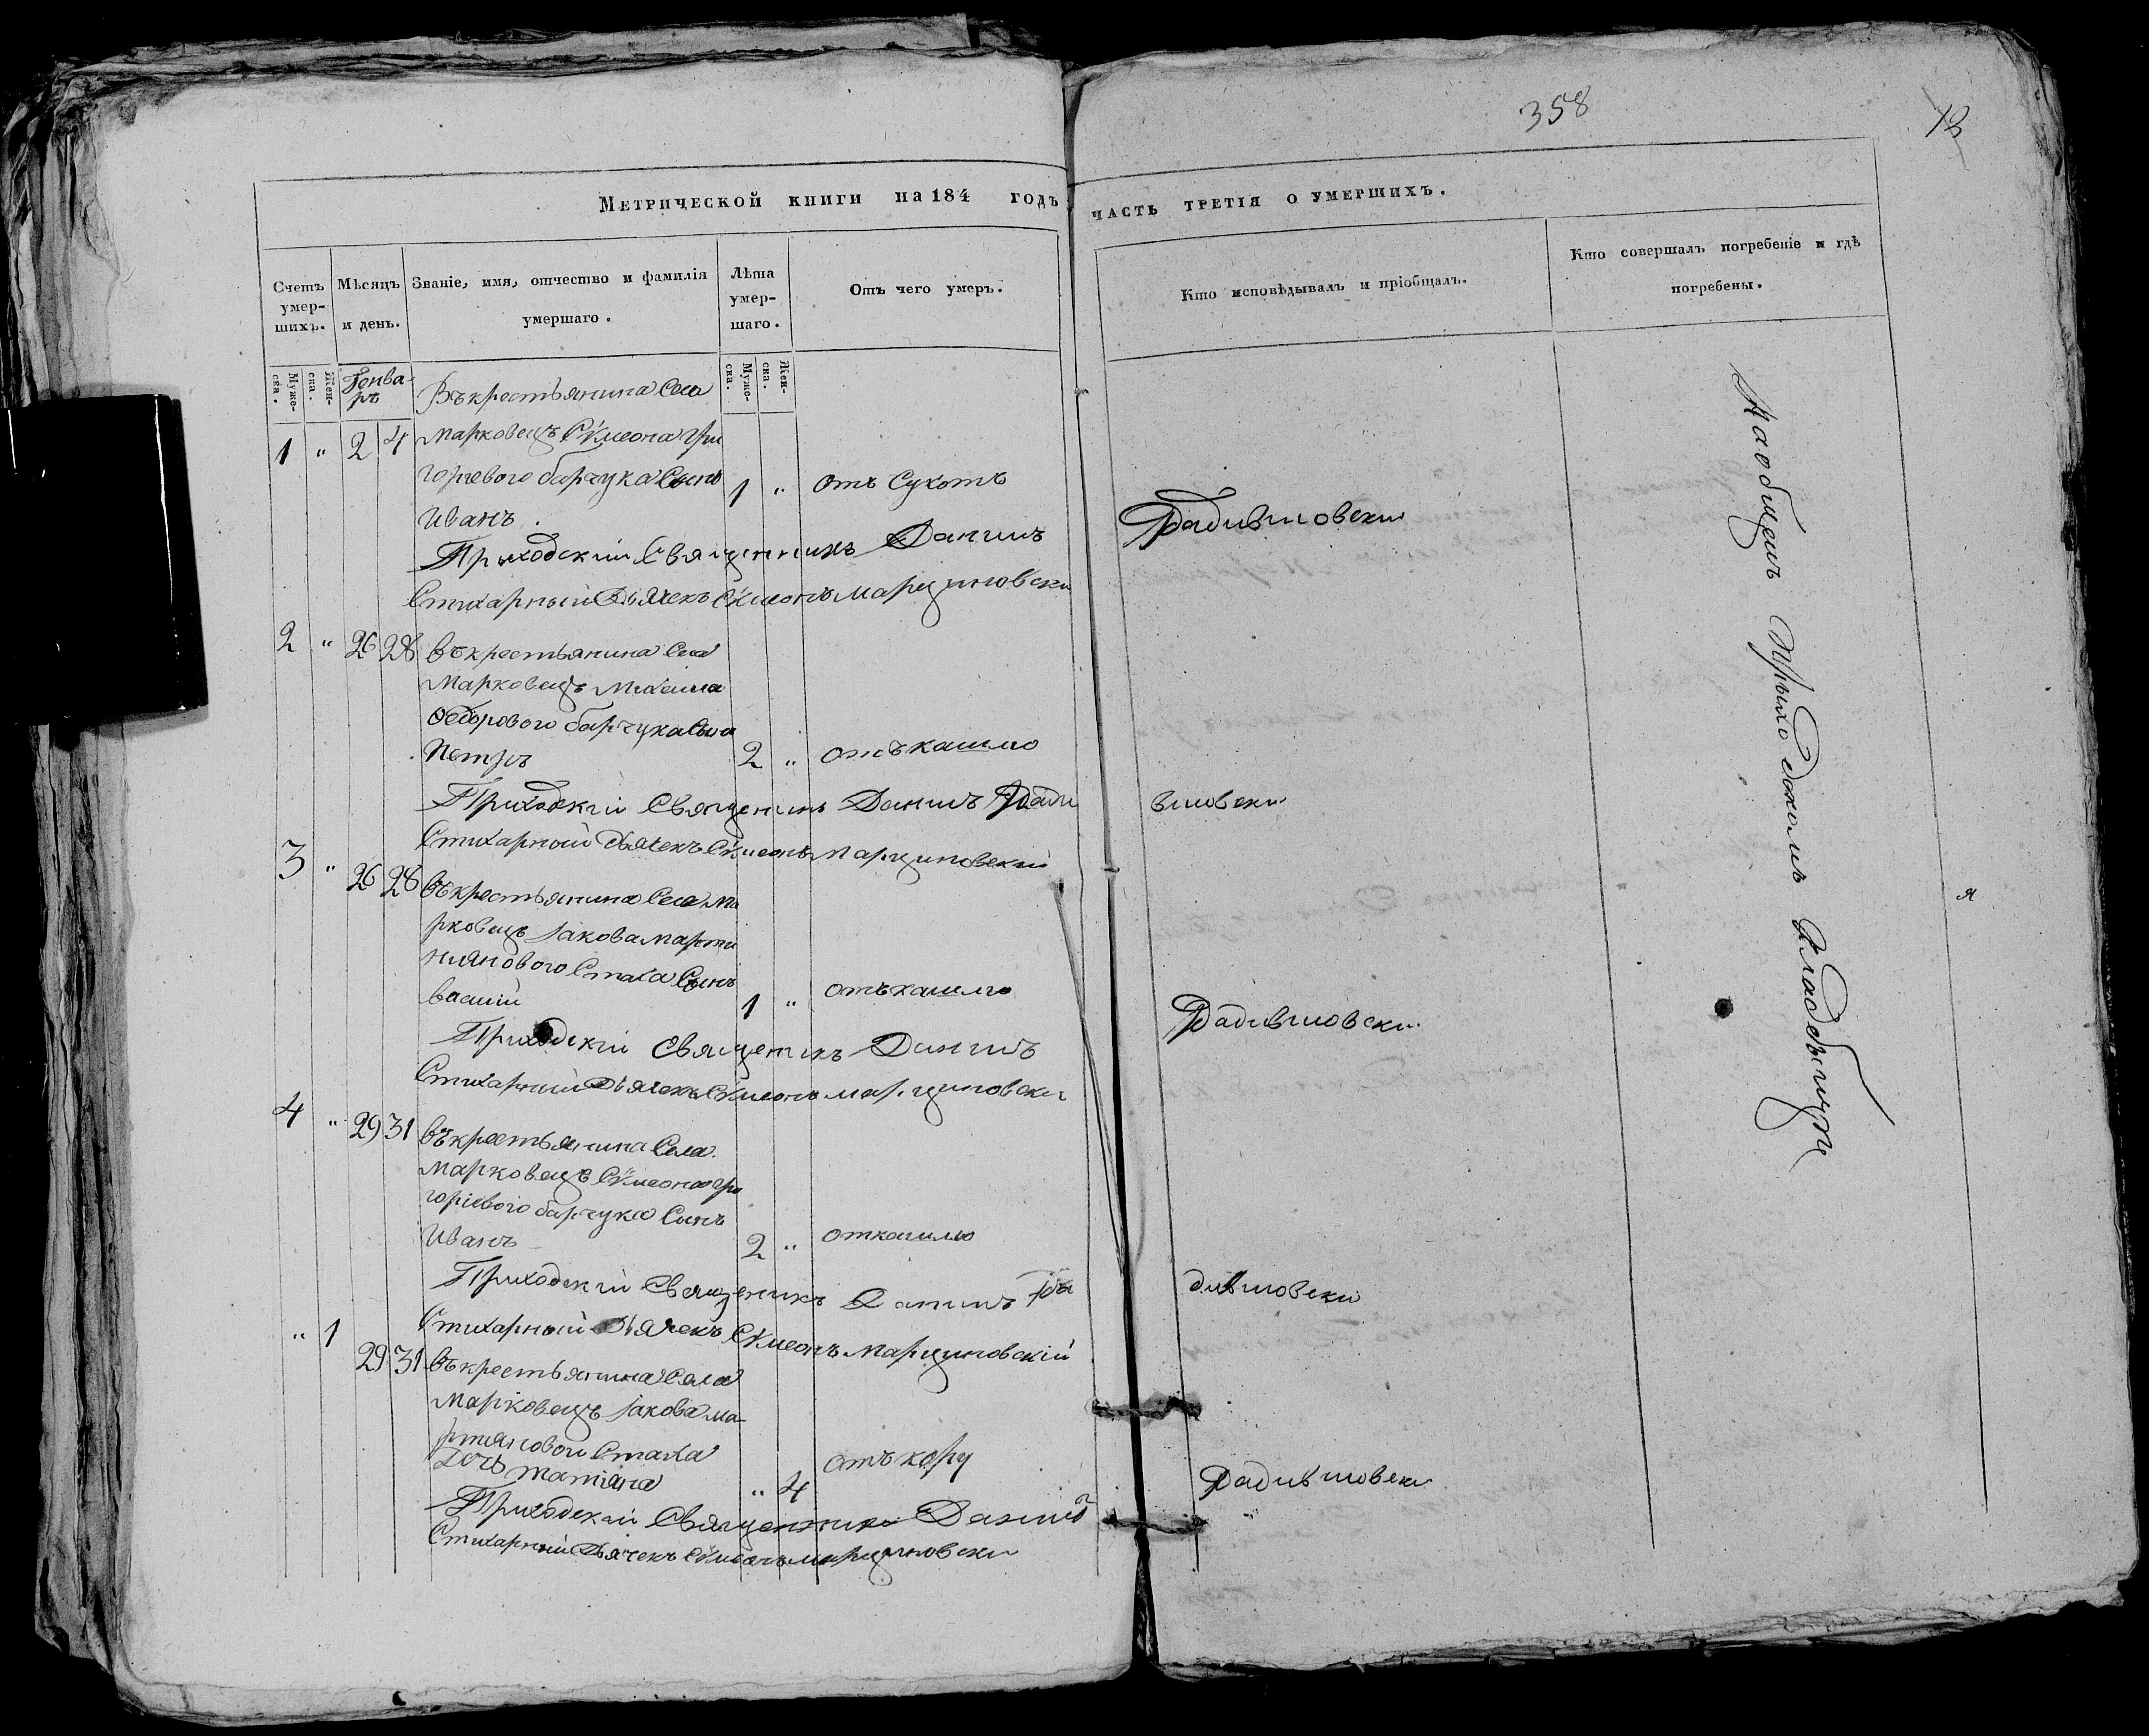 358
13
Метрической книги на 184 годъ часть третія о умершихъ.
Счетъ умер-шихъ.
Мѣсяцъ и день.
Званіе, имя, отчество и фамилія умершаго.
Лѣта умер-шаго.
Отъ чего умеръ.
Кто исповѣдывалъ и пріобщалъ.
Кто совершалъ погребеніе и гдѣ погребены.
Муже-ска.
Жен-ска.
Муже-ска.
Жен-ска.
Генва-
ръ
Въ крестьянина Села
1 " 2 4 Марковецъ Сѵмеона Гри
горіевого барчука Сынъ 1 " отъ Сухотъ
Иванъ.
Приходскій Священникъ Данилъ Радивиловски
Стихарный Дьячекъ Сѵмеонъ марциновски
2 " 26 28 въ крестьянина Села
Марковецъ Михаила
Ѳедорового барчука Сына
Петръ 2 " отъ кашлю
Приходскій Священикъ Данилъ Ради виловски
Стихарный Дьячекъ Сѵмеонъ Марциновскій
3 " 26 28 въ крестьянина Села Ма
рковецъ Іакова марти
нияного Стаха Сынъ
василій 1 " отъ кашлю
Приходскій Священикъ Данилъ Радивиловски
Стихарный Дьячекъ Сѵмеонъ марциновски
4 " 29 31 въ крестьянина Села
Марковецъ Сѵмеона Гри
горіевого барчука Сынъ
Иванъ 2 " от кашлю
Приходскій Священикъ Данилъ Ра дивиловски
Стихарный Дьячекъ Сѵмеонъ Марциновскій
" 1 29 31 въ крестьянина Села
Марковецъ Іакова ма-
ртиянового Стаха
Дочь Татіяна " 4 отъ кору
Приходскій Священникъ Данилъ Радивиловски
Стихарный Дьячекъ Сѵмеонъ марциновски
На общемъ Прыходскомъ Кладбищи
я